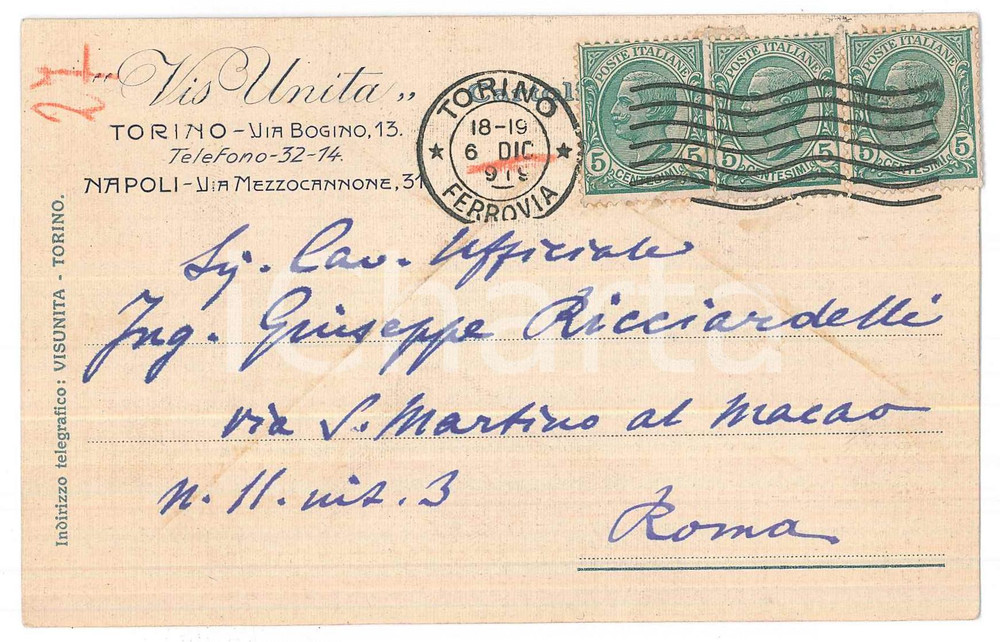 27
"Vis Unita"
TORINO - VIA BOGINO, 13.
Telefono - 32-14.
NAPOLI - VIA MEZZOCANNONE, 31
Indirizzo telegrafico: VISUNITA - TORINO.
TORINO
18-19
6 DIC
919
FERROVIA
POSTE ITALIANE
5 CENTESIMI 5
POSTE ITALIANE
5 CENTESIMI 5
POSTE ITALIANE
5 CENTESIMI 5
Sig. Cav. Ufficiale
Ing. Giuseppe Ricciardelli
via S. Martino al Macao
n. 11. int. 3
Roma
iCharta